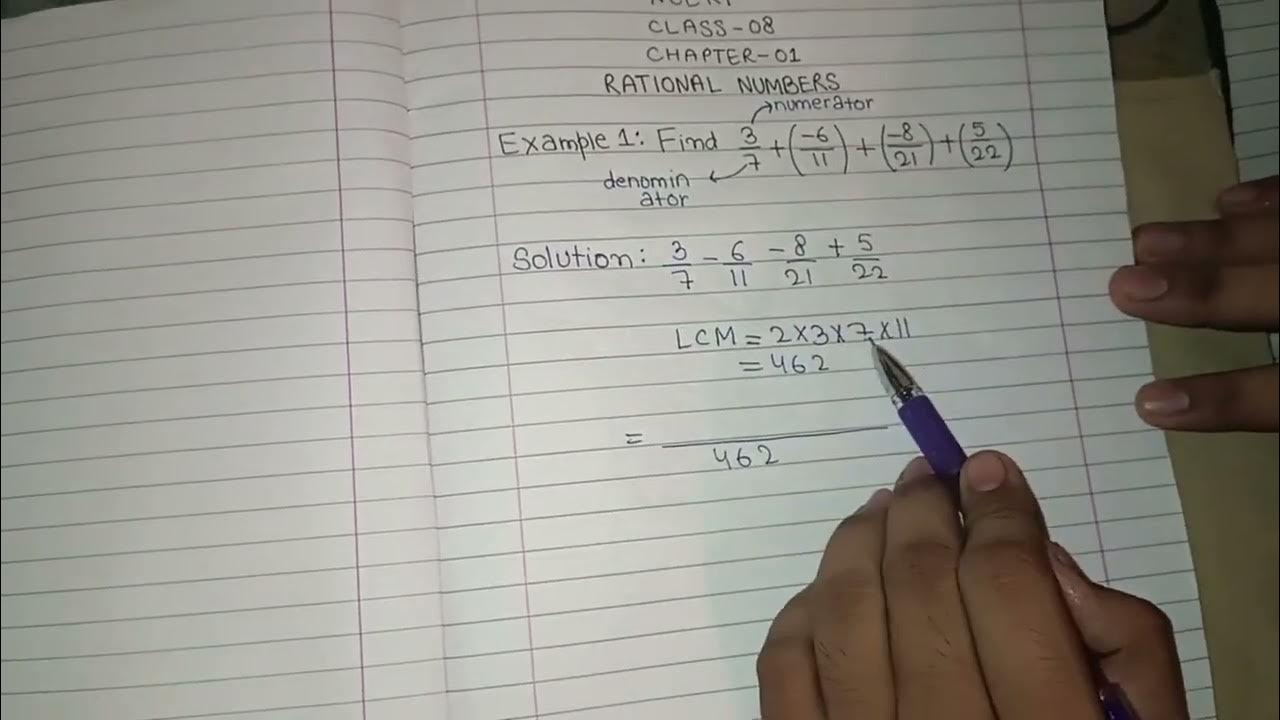 CLASS-08
CHAPTER-01
RATIONAL NUMBERS
numerator
Example 1: Find 3/7 + (-6/11) + (-8/21) + (5/22)
denomin
ator
Solution: 3/7 - 6/11 - 8/21 + 5/22
LCM = 2×3×7×11
= 462
= ――― / 462